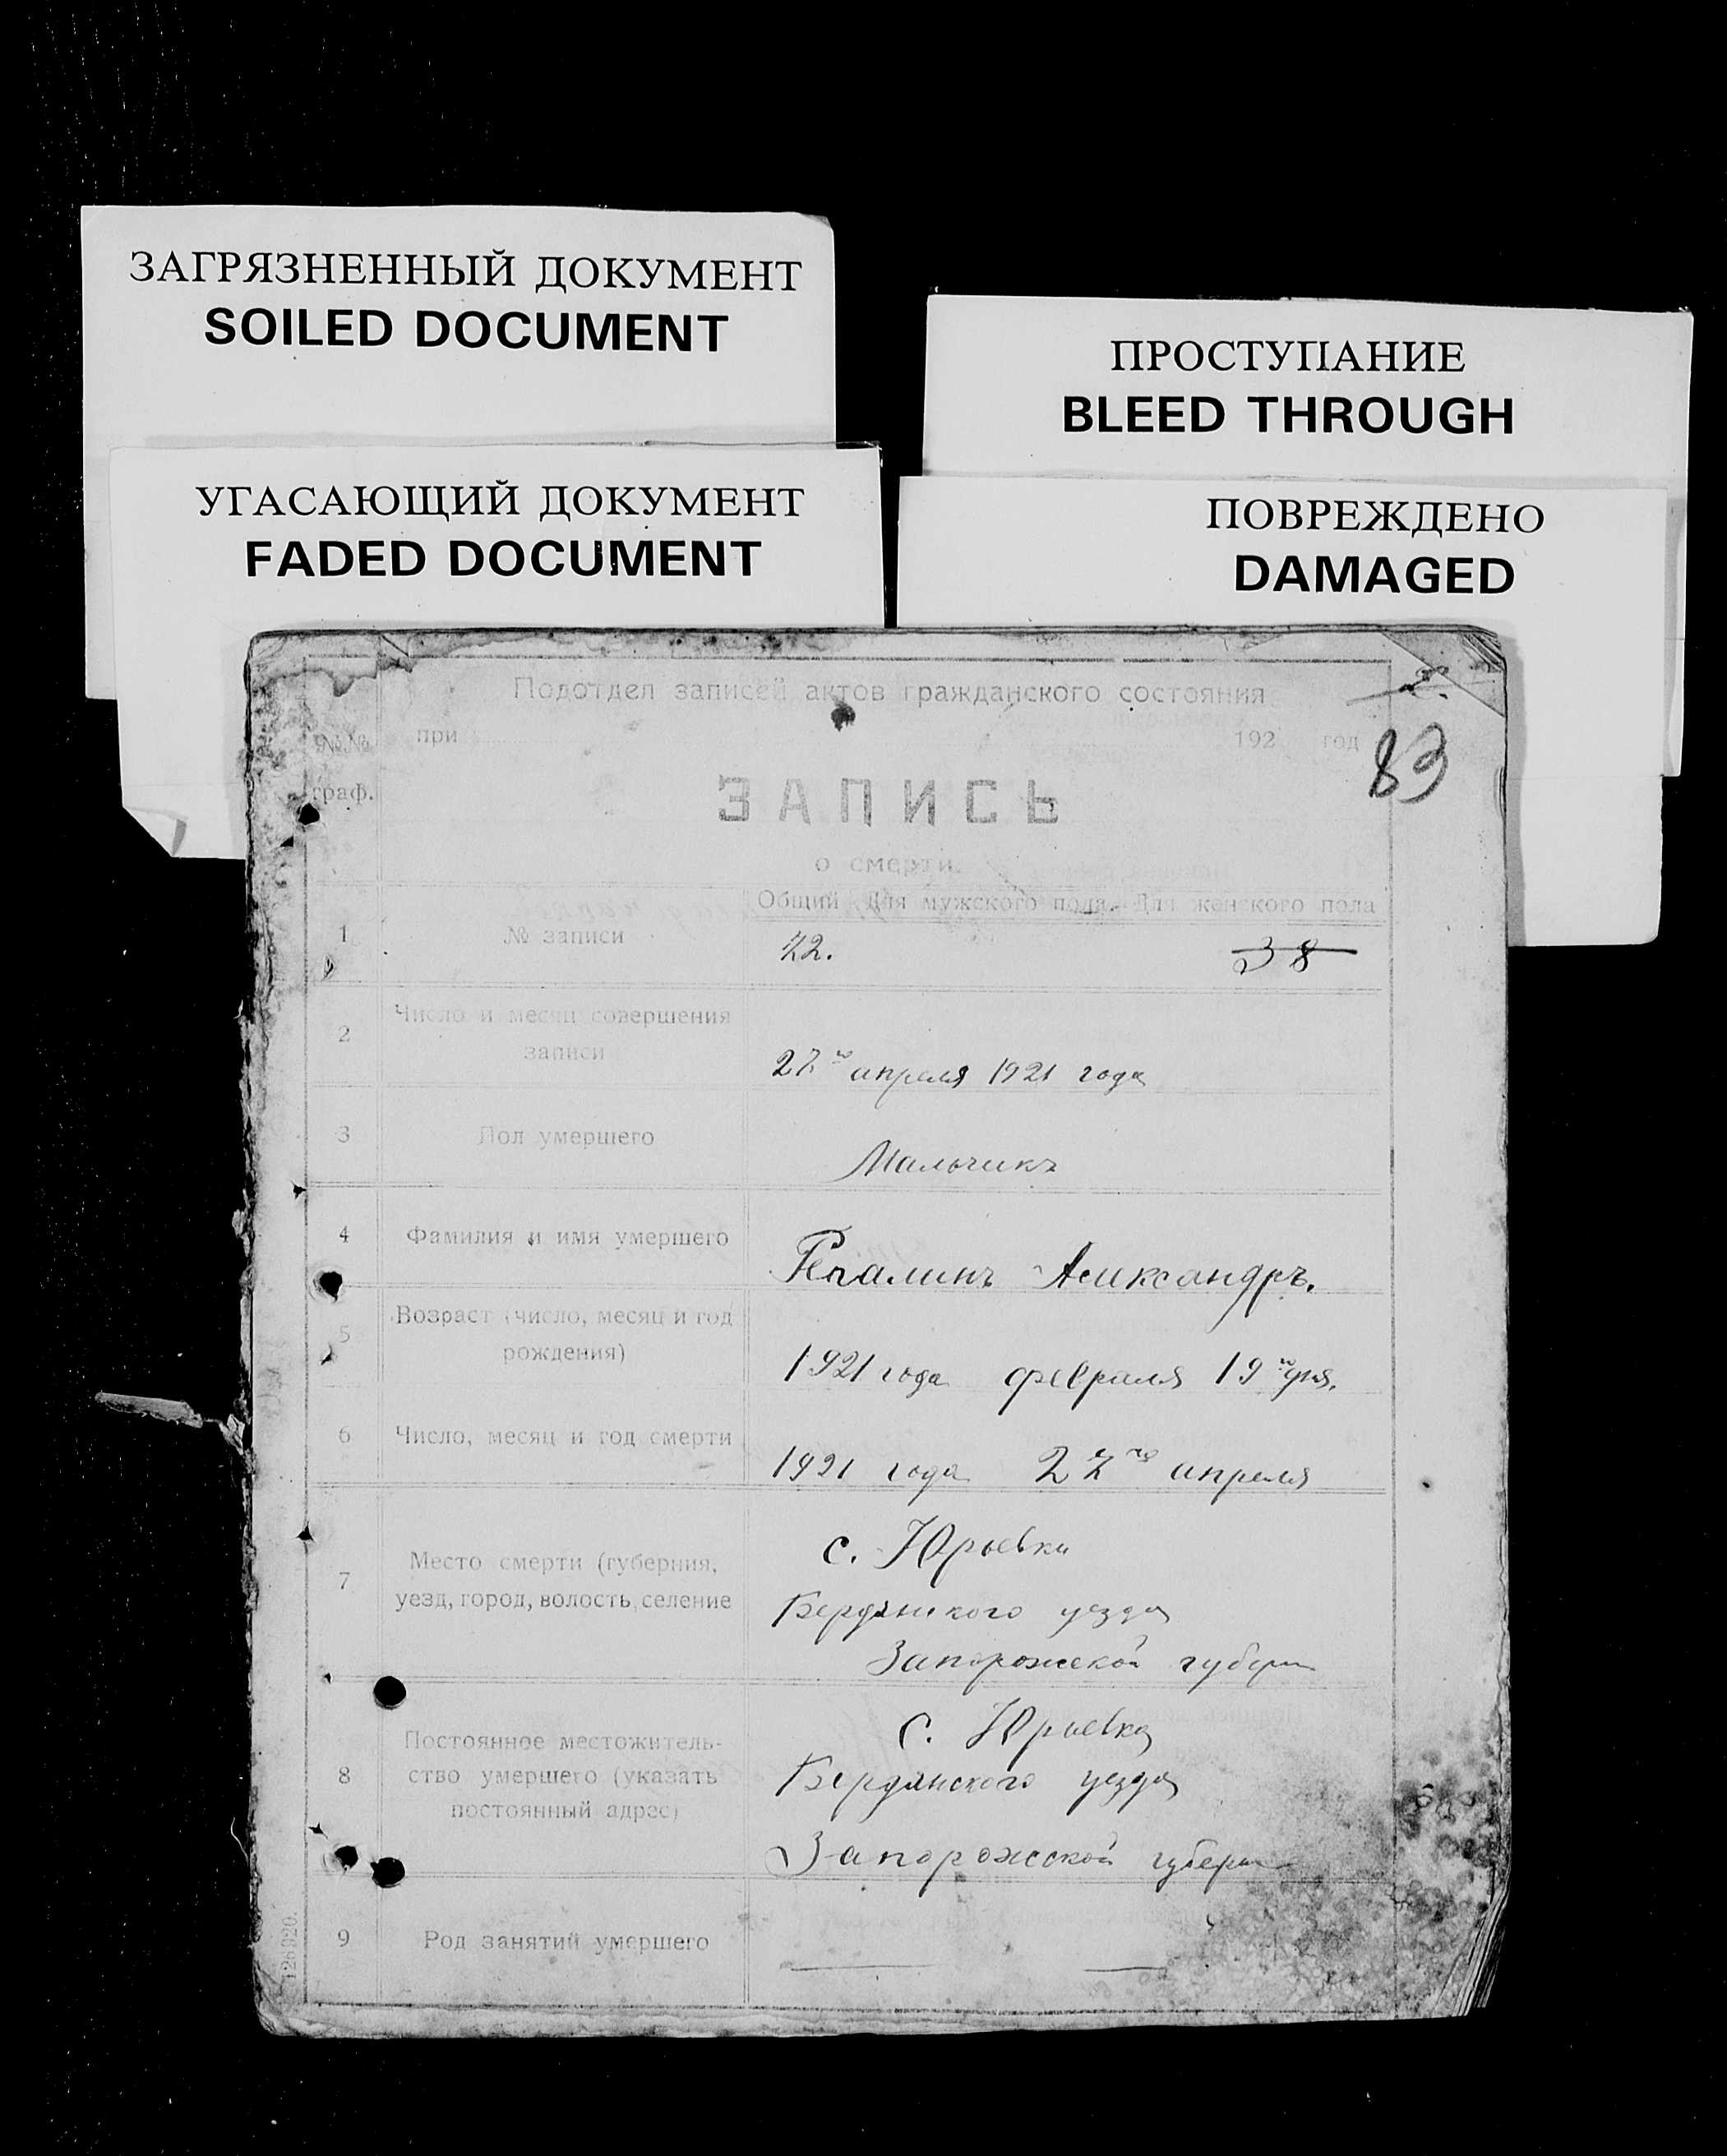 ЗАГРЯЗНЕННЫЙ ДОКУМЕНТ
SOILED DOCUMENT
ПРОСТУПАНИЕ
BLEED THROUGH
УГАСАЮЩИЙ ДОКУМЕНТ
FADED DOCUMENT
ПОВРЕЖДЕНО
DAMAGED
Подотдел записей актов гражданского состояния
№№ при 192 год
83
граф.
ЗАПИСЬ
о смерти
Общий Для мужского пола. Для женского пола
1 № записи
38
2 Число и месяц совершения
записи
27го апреля 1921 года
3 Пол умершего
Мальчикъ
4 Фамилия и имя умершего
Репалинъ Александръ.
5 Возраст (число, месяц и год
рождения)
1921 года февраля 19го дня.
6 Число, месяц и год смерти
1921 года 27го апреля
7 Место смерти (губерния,
уезд, город, волость, селение
с. Юрьевки
Бердянского уезда
Запорожской губерн
8 Постоянное местожитель-
ство умершего (указать
постоянный адрес)
с. Юрьевка
Бердянского уезда
Запорожской губерн
9 Род занятий умершего